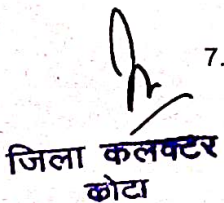 7.
जिला कलक्टर
कोटा